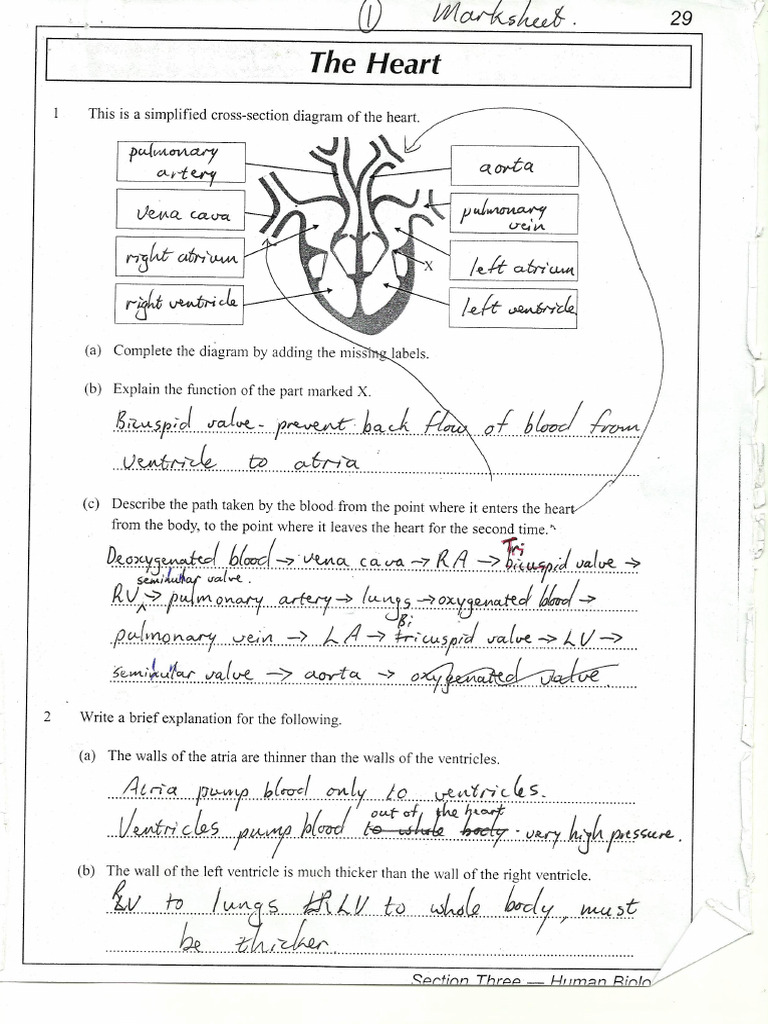 ① Marksheet. 29
The Heart
1 This is a simplified cross-section diagram of the heart.
pulmonary
artery
aorta
vena cava
pulmonary
vein
right atrium
X
left atrium
right ventricle
left ventricle
(a) Complete the diagram by adding the missing labels.
(b) Explain the function of the part marked X.
Bicuspid valve - prevent back flow of blood from
ventricle to atria
(c) Describe the path taken by the blood from the point where it enters the heart
from the body, to the point where it leaves the heart for the second time.
Tri
Deoxygenated blood → vena cava → RA → bicuspid valve →
semilular valve.
RV → pulmonary artery → lungs → oxygenated blood →
Bi
pulmonary vein → LA → tricuspid valve → LV →
semilular valve → aorta → oxygenated valve.
2 Write a brief explanation for the following.
(a) The walls of the atria are thinner than the walls of the ventricles.
Atria pump blood only to ventricles.
out of the heart
Ventricles pump blood to whole body. very high pressure.
(b) The wall of the left ventricle is much thicker than the wall of the right ventricle.
RV to lungs LV to whole body, must
be thicker.
Section Three — Human Biolo